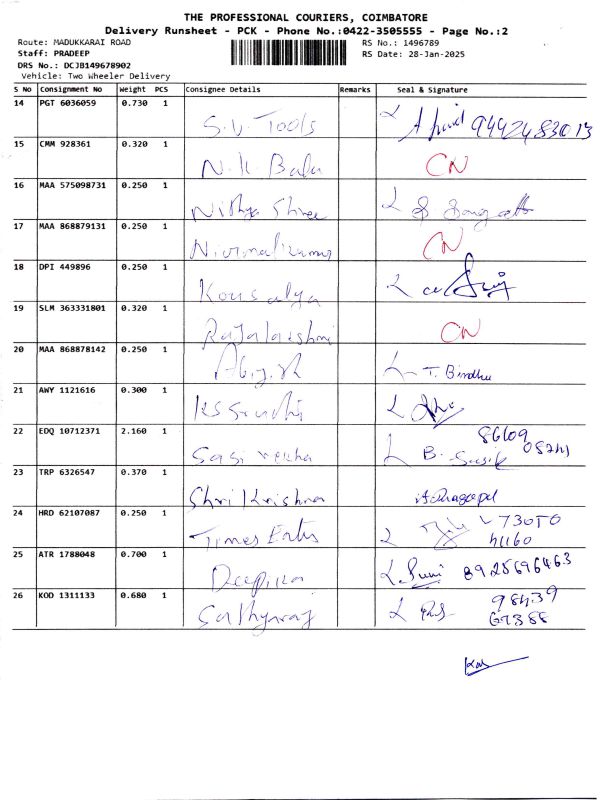 THE PROFESSIONAL COURIERS, COIMBATORE
Delivery Runsheet - PCK - Phone No.:0422-3505555 - Page No.:2
Route: MADUKKARAI ROAD RS No.: 1496789
Staff: PRADEEP RS Date: 28-Jan-2025
DRS No.: DCJB149678902
Vehicle: Two Wheeler Delivery
S No Consignment No Weight PCS Consignee Details Remarks Seal & Signature
14 PGT 6036059 0.730 1 S.V. Tools 9442483013
15 CMM 928361 0.320 1 N.K. Balu CN
16 MAA 575098731 0.250 1 Nithya Shree
17 MAA 868879131 0.250 1 Nirmalkumar CN
18 DPI 449896 0.250 1 Kousalya
19 SLM 363331801 0.320 1 Rajalakshmi CN
20 MAA 868878142 0.250 1 T. Bindhu
21 AWY 1121616 0.300 1
22 EDQ 10712371 2.160 1 Sasi rekha B.
23 TRP 6326547 0.370 1 Shri Krishna
24 HRD 62107087 0.250 1 Times
25 ATR 1788048 0.700 1 Deepika 8925696463
26 KOD 1311133 0.680 1 Sathyaraj 98439
67388